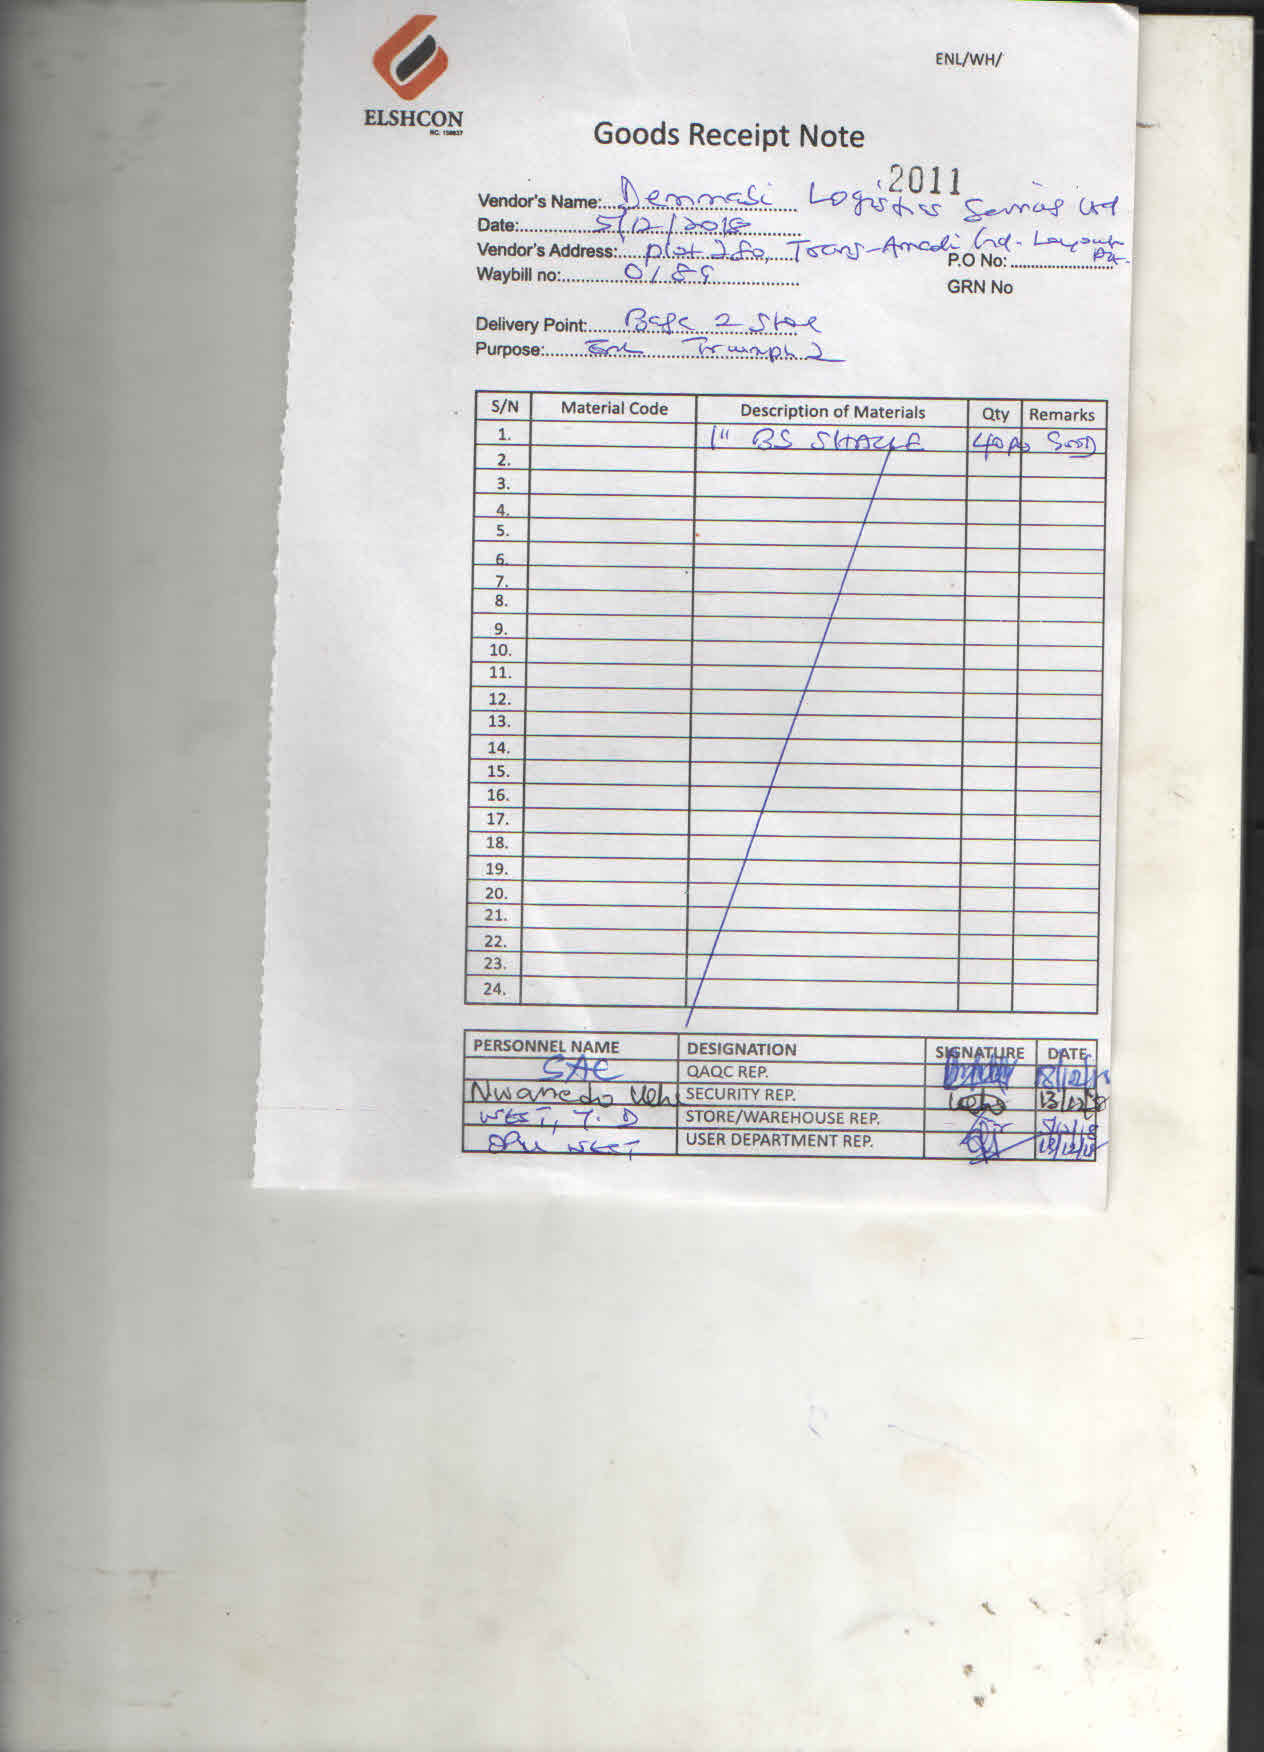 ELSHCON
RC. 158837
ENL/WH/
Goods Receipt Note
2011
Vendor's Name: Demmasi Logistics Services Ltd
Date: 5/12/2018
Vendor's Address: Plot 280, Trans-Amadi Ind. Layout PH.
P.O No:
Waybill no: 0189
GRN No
Delivery Point: Base 2 Store
Purpose: Triumph 2
S/N Material Code Description of Materials Qty Remarks
1. 1" BS SHACKLE 40pcs GOOD
2.
3.
4.
5.
6.
7.
8.
9.
10.
11.
12.
13.
14.
15.
16.
17.
18.
19.
20.
21.
22.
23.
24.
PERSONNEL NAME DESIGNATION SIGNATURE DATE
QAQC REP.
Nwanedo SECURITY REP. 13/12/18
WEST, T. D STORE/WAREHOUSE REP. 5/12/18
WEST USER DEPARTMENT REP. 13/12/18